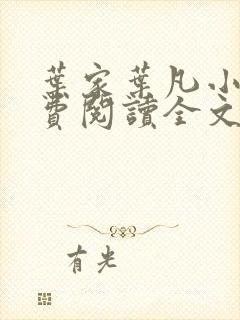 葉家葉凡小
費閱讀全文
有光